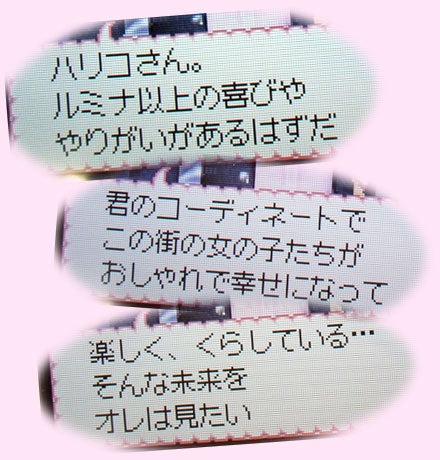 ハリコさん。
ルミナ以上の喜びや
やりがいがあるはずだ
君のコーディネートで
この街の女の子たちが
おしゃれで幸せになって
楽しく、くらしている…
そんな未来を
オレは見たい